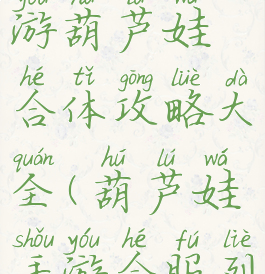 yóu hú lú wá
游葫芦娃
hé tǐ gōng lüè dà
合体攻略大
quán hú lú wá
全(葫芦娃
shǒu yóu hé fú liè
手游合服列